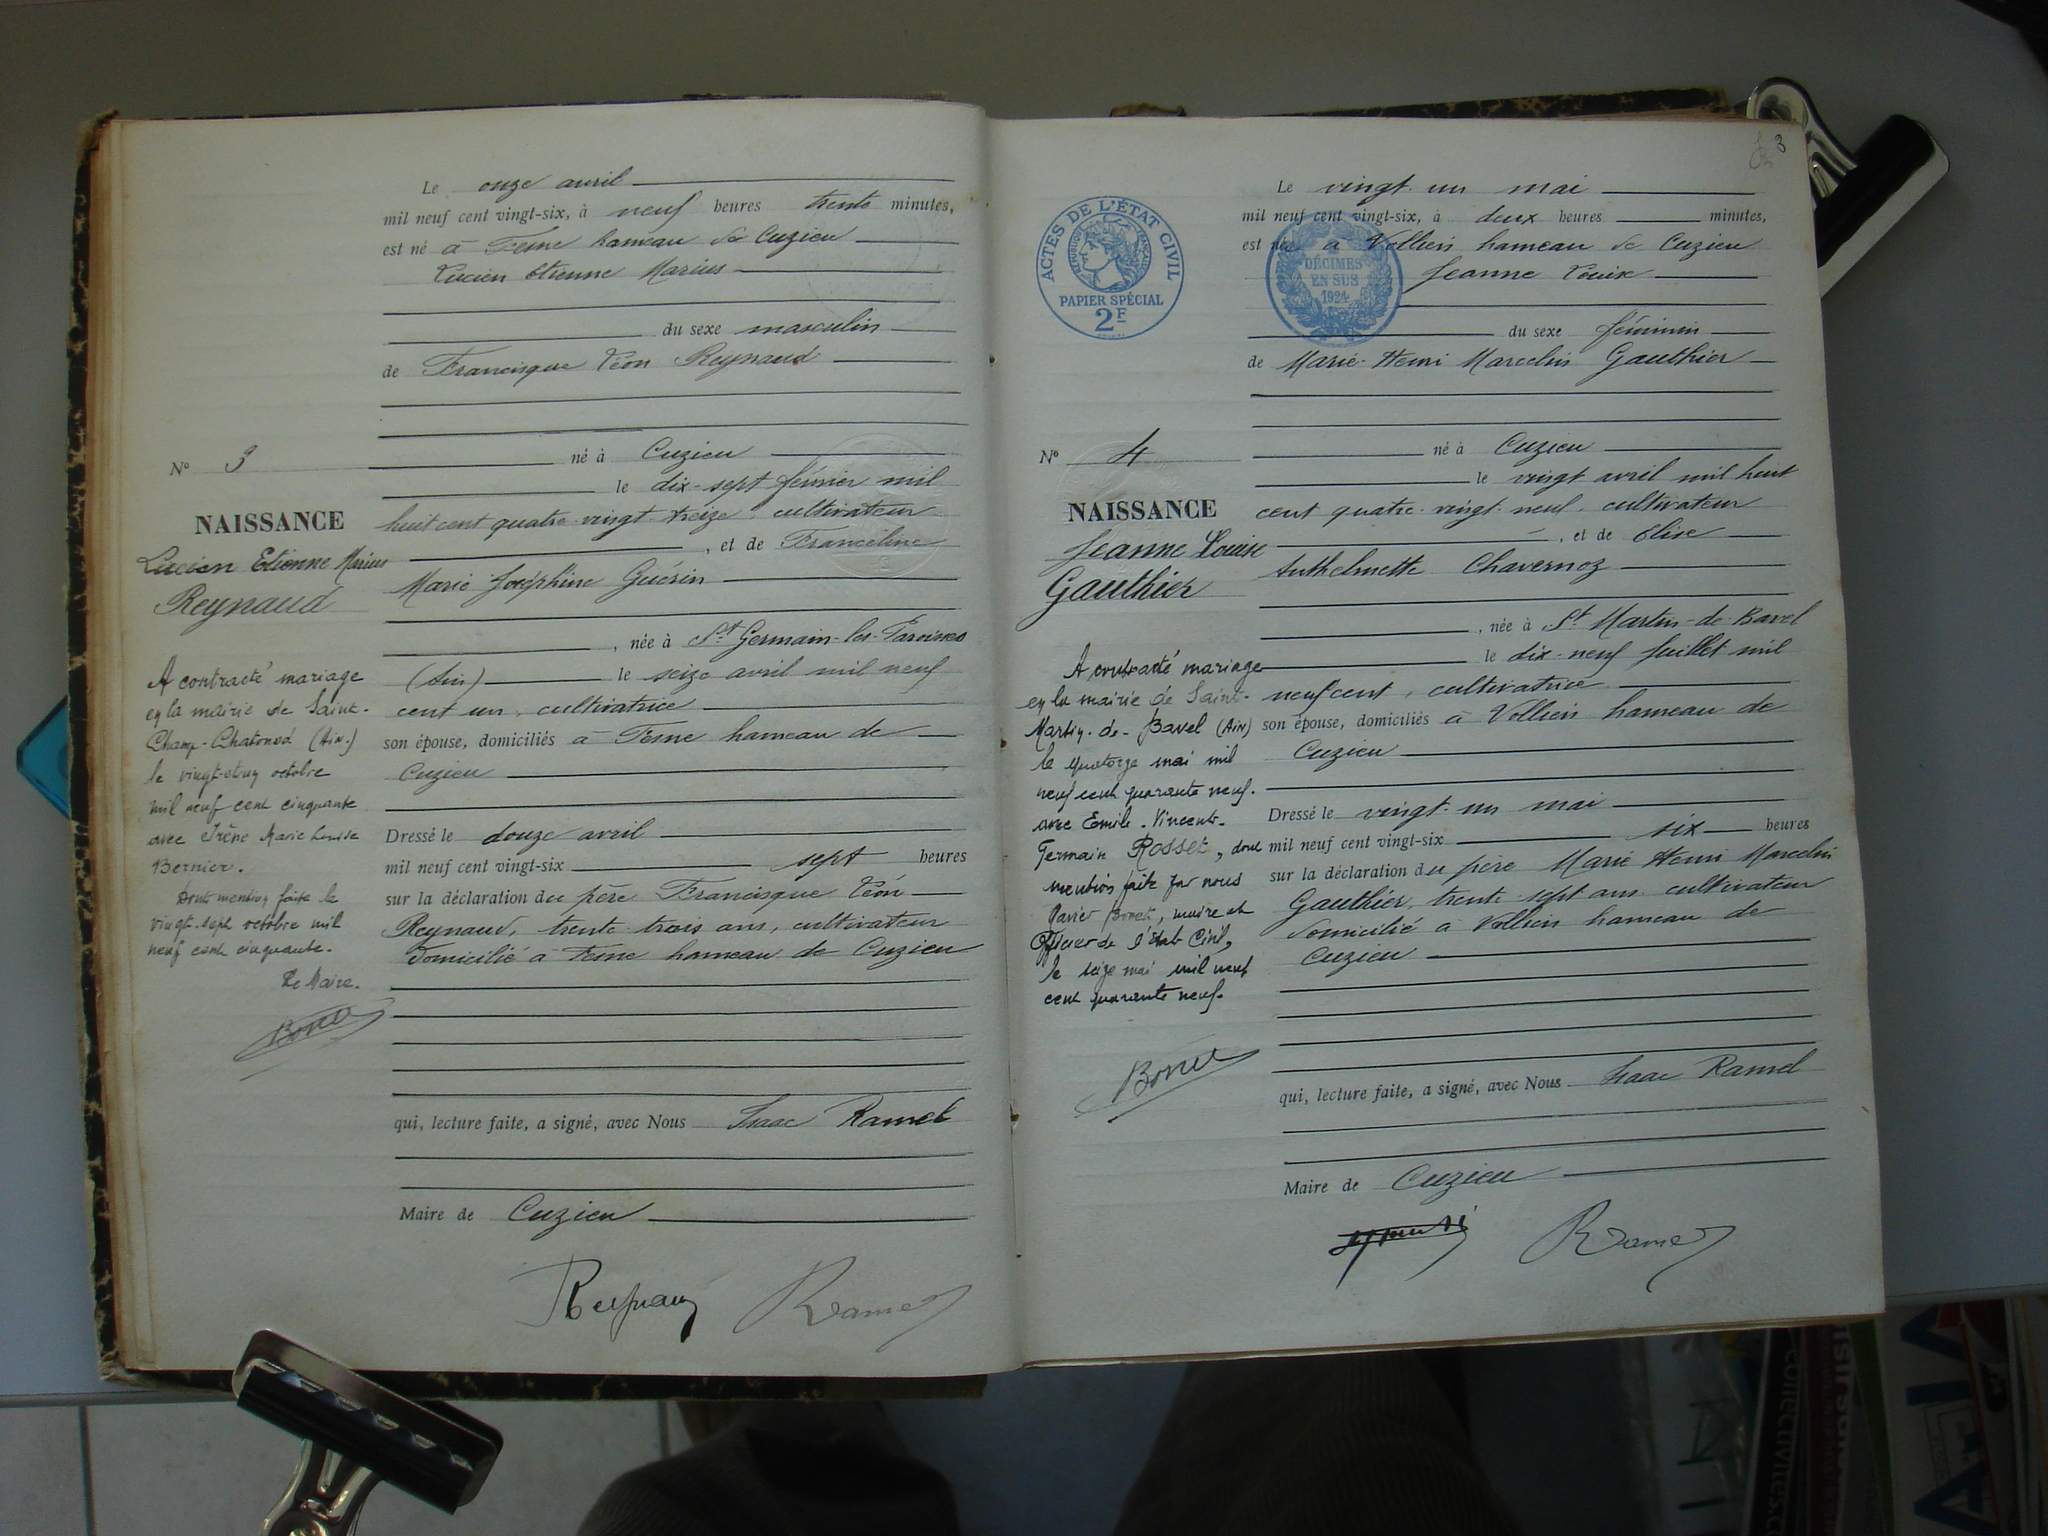 Le onze avril
mil neuf cent vingt-six, à neuf heures trente minutes,
est né à Ferne hameau de Cuzieu
Lucien Etienne Marius
du sexe masculin
de Francisque Léon Reynaud
né à Cuzieu
le dix-sept février mil
huit cent quatre-vingt-treize, cultivateur
, et de Franceline
Marie Joséphine Guérin
, née à St Germain-les-Paroisses
(Ain) le seize avril mil neuf
cent un, cultivatrice
son épouse, domiciliés à Ferne hameau de
Cuzieu
Dressé le douze avril
mil neuf cent vingt-six sept heures
sur la déclaration du père Francisque Léon
Reynaud, trente-trois ans, cultivateur
Domicilié à Ferne hameau de Cuzieu
qui, lecture faite, a signé, avec Nous Isaac Ramel
Maire de Cuzieu
Reynaud Ramel
N° 3
NAISSANCE
Lucien Etienne Marius
Reynaud
A contracté mariage
en la mairie de Saint-
Champ-Chatonod (Ain.)
le vingt-et-un octobre
mil neuf cent cinquante
avec Irène Marie Louise
Bernier.
Dont mention faite le
vingt-sept octobre mil
neuf cent cinquante.
Le Maire.
Bonet
3
ACTES DE L'ÉTAT CIVIL
RÉPUBLIQUE FRANÇAISE
PAPIER SPÉCIAL
2F
DÉCIMES
EN SUS
1924
Le vingt-un mai
mil neuf cent vingt-six, à deux heures minutes,
est née à Volliein hameau de Cuzieu
Jeanne Louise
du sexe féminin
de Marie-Henri Marcelin Gauthier
né à Cuzieu
le vingt avril mil huit
cent quatre-vingt-neuf, cultivateur
, et de Elise
Anthelmette Chavernoz
, née à St Martin-de-Bavel
le dix-neuf juillet mil
neuf cent, cultivatrice
son épouse, domiciliés à Volliein hameau de
Cuzieu
Dressé le vingt-un mai
mil neuf cent vingt-six six heures
sur la déclaration du père Marie Henri Marcelin
Gauthier, trente-sept ans cultivateur
domicilié à Volliein hameau de
Cuzieu
qui, lecture faite, a signé, avec Nous Isaac Ramel
Maire de Cuzieu
Ramel
N° 4
NAISSANCE
Jeanne Louise
Gauthier
A contracté mariage
en la mairie de Saint-
Martin-de-Bavel (Ain)
le quatorze mai mil
neuf cent quarante neuf.
avec Emile-Vincent-
Germain Rosset, dont
mention faite par nous
Xavier Bonet, maire et
Officier de l'état Civil,
le seize mai mil neuf
cent quarante neuf.
Bonet